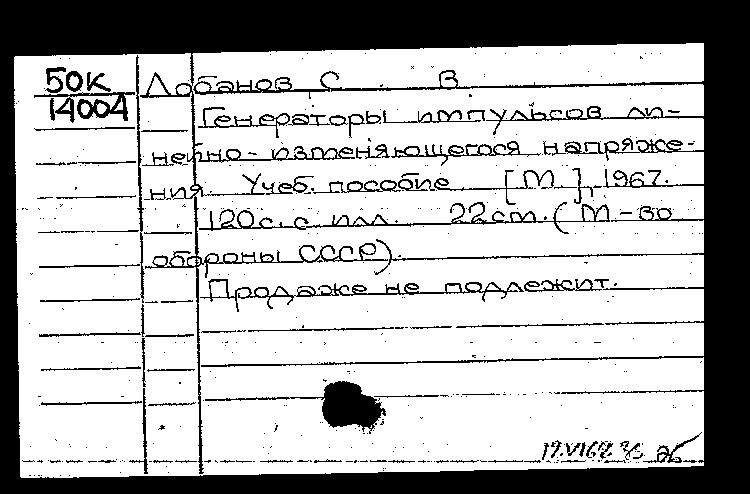 50К Лобанов С. В.
14004 Генераторы импульсов ли-
нейно-изменяющегося напряже-
ния. Учеб. пособие. [М.], 1967.
120с. с илл. 22 см. (М-во
обороны СССР).
Продаже не подлежит.